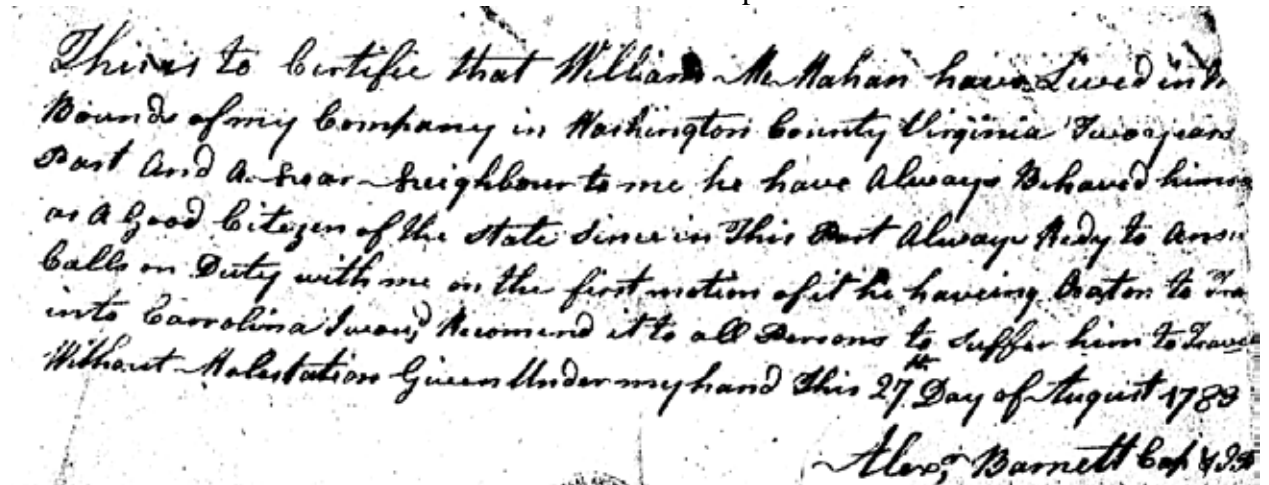 This is to Certifie that William McMahan have Lived in
Bounds of my Company in Washington County Virginia Two years
Past And A near neighbour to me he have Always Behaved
as A Good Citizen of the state Since in This Part Always Redy to
Calls on Duty with me on the first motion of it he haveing to
into Carrolina I woud Recomend it to all Persons to Suffer him to
Without Molestation Given Under my hand This 27th Day of August 1783
Alexr Barnett Cap